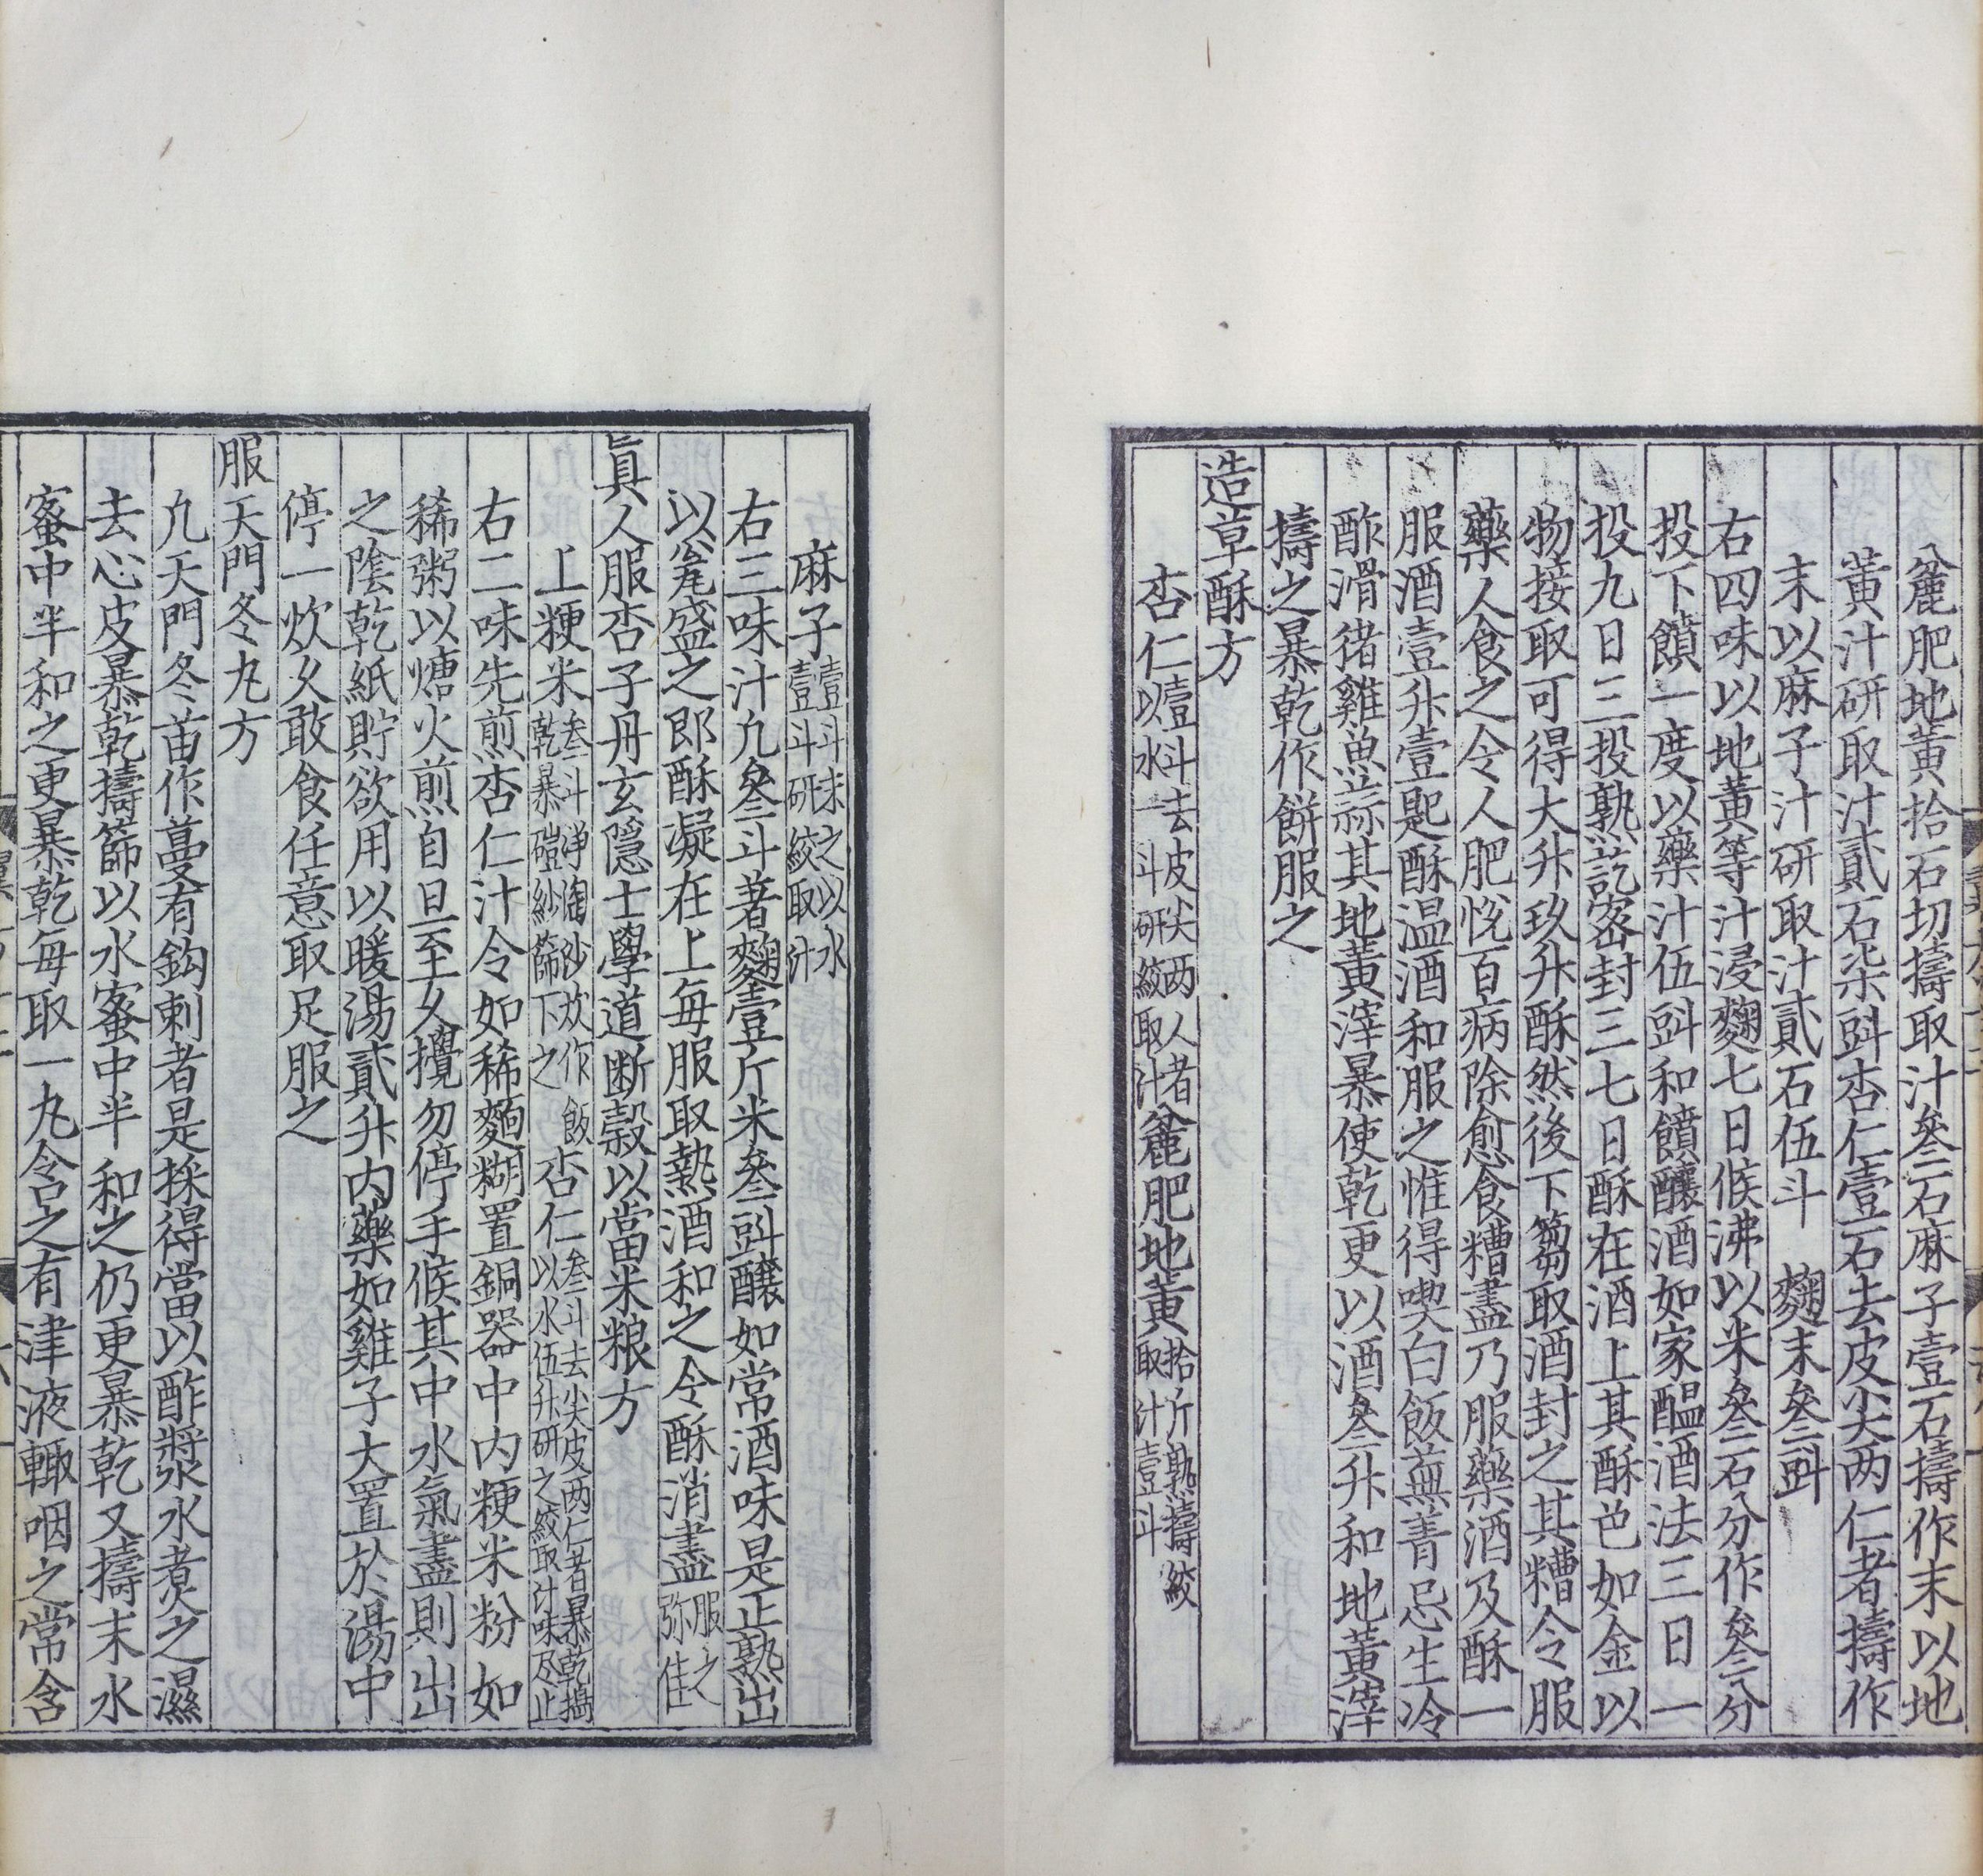 麄肥地黄拾石切擣取汁叄石麻子壹石擣作末以地
黃汁研取汁貳石柒㪷杏仁壹石去皮尖两仁者擣作
末以麻子汁研取汁貳石伍斗 麴末叄㪷
右四味以地黄等汁浸麴七日候沸以米叄石分作叄分
投下饙一度以藥汁伍㪷和饙釀酒如家醖酒法三日一
投九日三投熟訖密封三七日酥在酒上其酥色如金以
物接取可得大升玖升酥然後下篘取酒封之其糟令服
藥人食之令人肥悅百病除愈食糟盡乃服藥酒及酥一
服酒壹升壹匙酥温酒和服之惟得喫白飯蕪菁忌生冷
酢滑猪雞魚蒜其地黄滓暴使乾更以酒叄升和地黃滓
擣之暴乾作餅服之
造草酥方
杏仁壹斗去皮尖两人者以水一斗研絞取汁麄肥地黄拾斤熟擣絞取汁壹斗
麻子壹斗末之以水壹斗研絞取汁
右三味汁凢叄斗著麴壹斤米叄㪷釀如常酒味是正熟出
以瓮盛之郎酥凝在上每服取熱酒和之令酥消盡服之弥佳
眞人服杏子丹玄隱士學道断穀以當米粮方
上粳米叄斗淨淘沙炊作飯乾暴磑紗篩下之杏仁叄斗去尖皮两仁者暴乾擣以水伍升研之絞取汁味尽止
右二味先煎杏仁汁令如稀麵糊置銅器中内粳米粉如
稀粥以煻火煎自旦至夂攪勿停手候其中水氣盡則出
之陰乾紙貯欲用以暖湯貳升内藥如雞子大置於湯中
停一炊久敢食任意取足服之
服天門冬丸方
凢天門冬苗作蔓有鈎刺者是採得當以酢漿水煮之濕
去心皮暴乾擣篩以水蜜中半和之仍更暴乾又擣末水
蜜中半和之更暴乾每取一丸含之有津液輙咽之常含